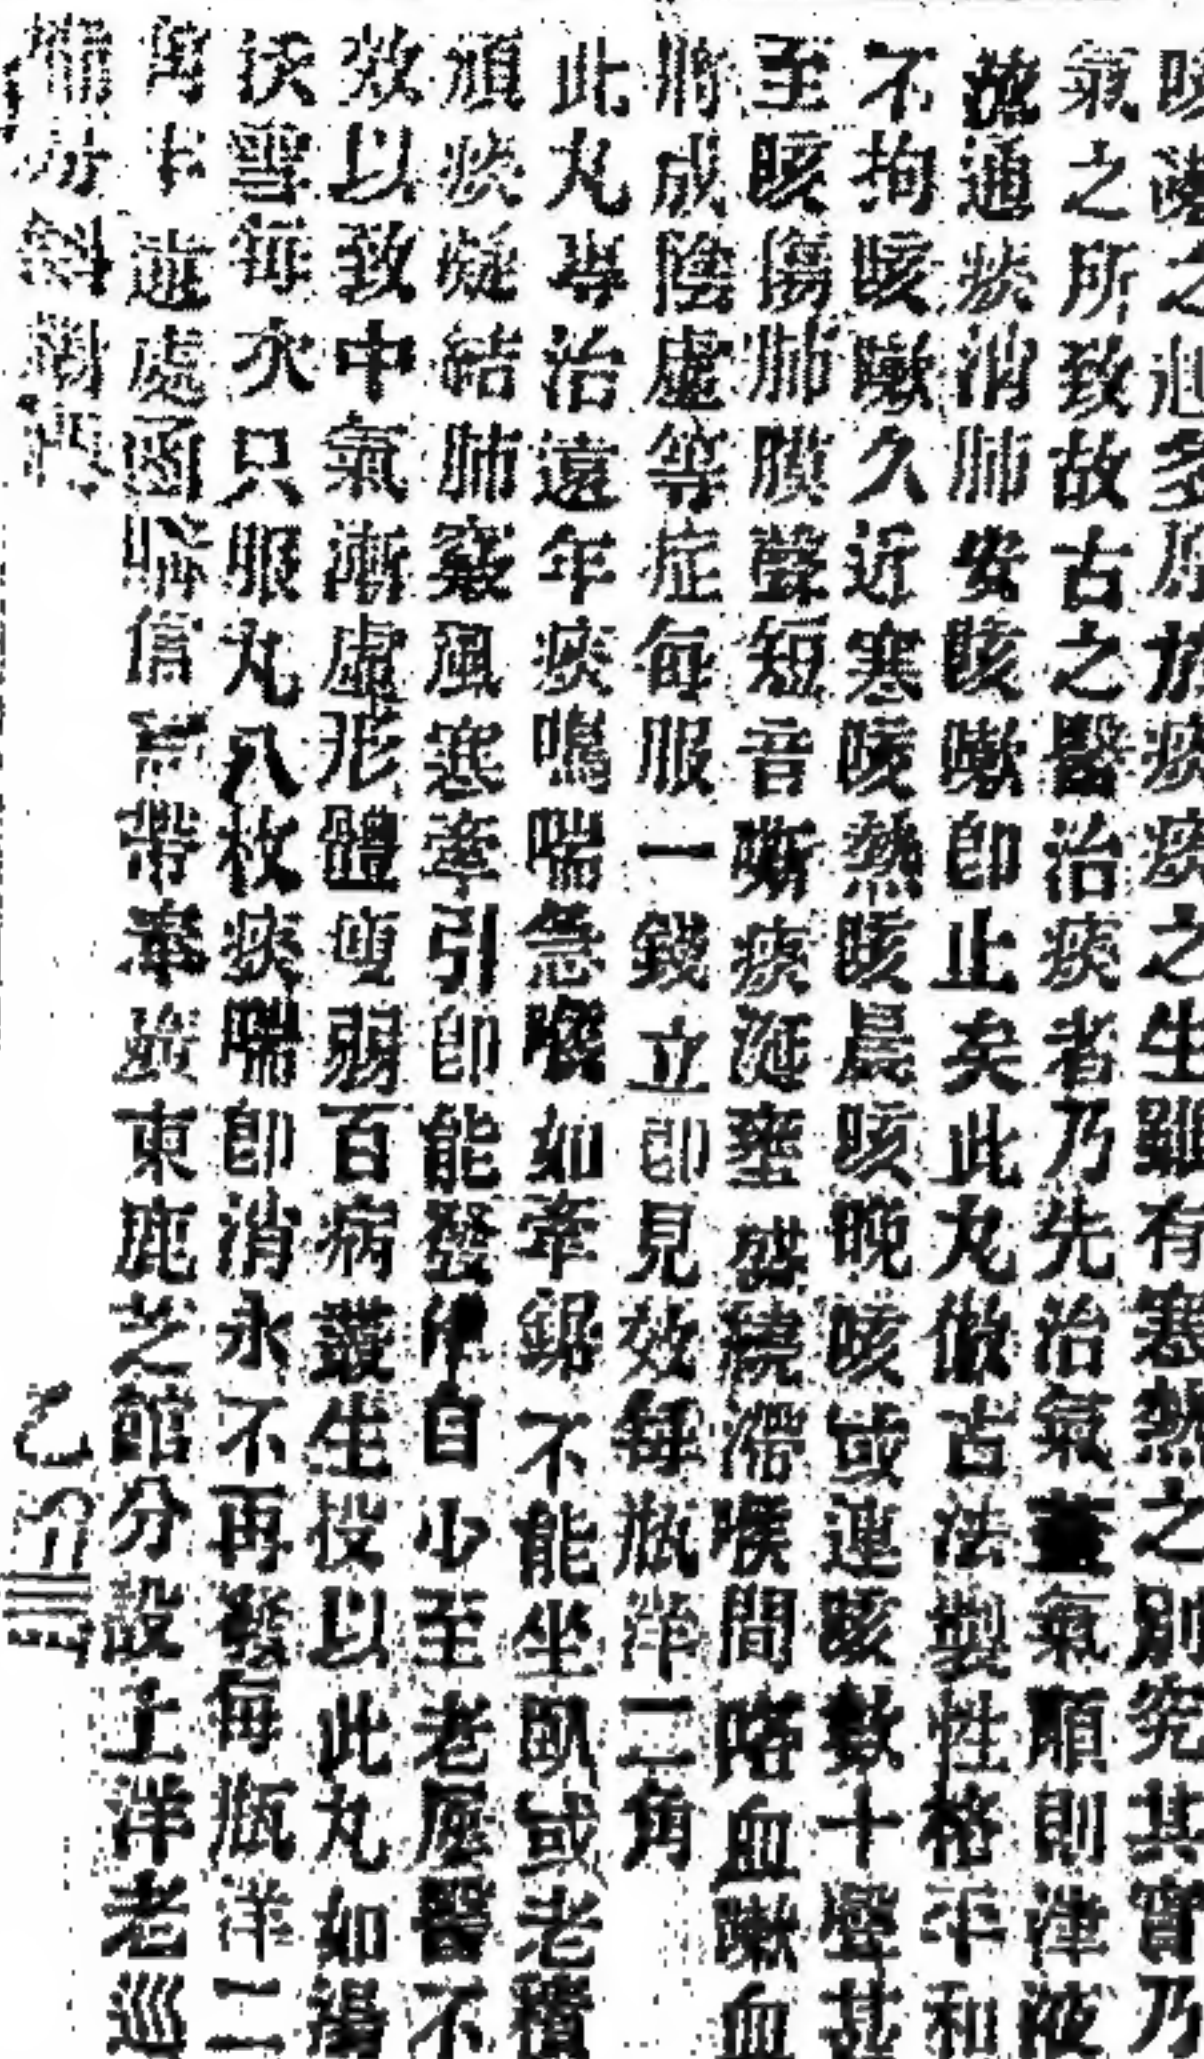 咳嗽之起多原於痰痰之生雖有寒熱之別究其實乃
氣之所致故古之醫治痰者乃先治氣蓋氣順則津液
流通痰消肺安咳嗽即止矣此丸倣古法製性格平和
不拘咳嗽久近寒咳熱咳晨咳晚咳或連咳數十聲甚
至咳傷肺膜聲短音嘶痰涎壅盛繞滯喉間咯血嗽血
將成陰虛等症每服一錢立即見效每瓶洋二角
此丸專治遠年痰鳴喘急喉如牽鋸不能坐臥或老積
頑痰凝結肺竅風寒牽引即能發作自少至老屢醫不
效以致中氣漸虛形體瘦弱百病叢生投以此丸如湯
沃雪每次只服丸八枚痰喘即消永不再發每瓶洋二
角 遠處函 信 帶奉 東鹿芝館分設上洋老巡
捕房斜對門